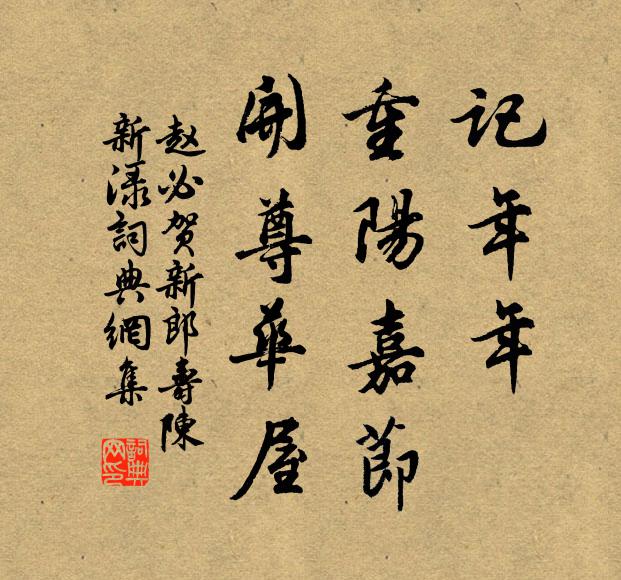 记年年
重陽嘉節
開尊華屋
赵必贺新郎壽陳
新渌詞典網集
詞典网印